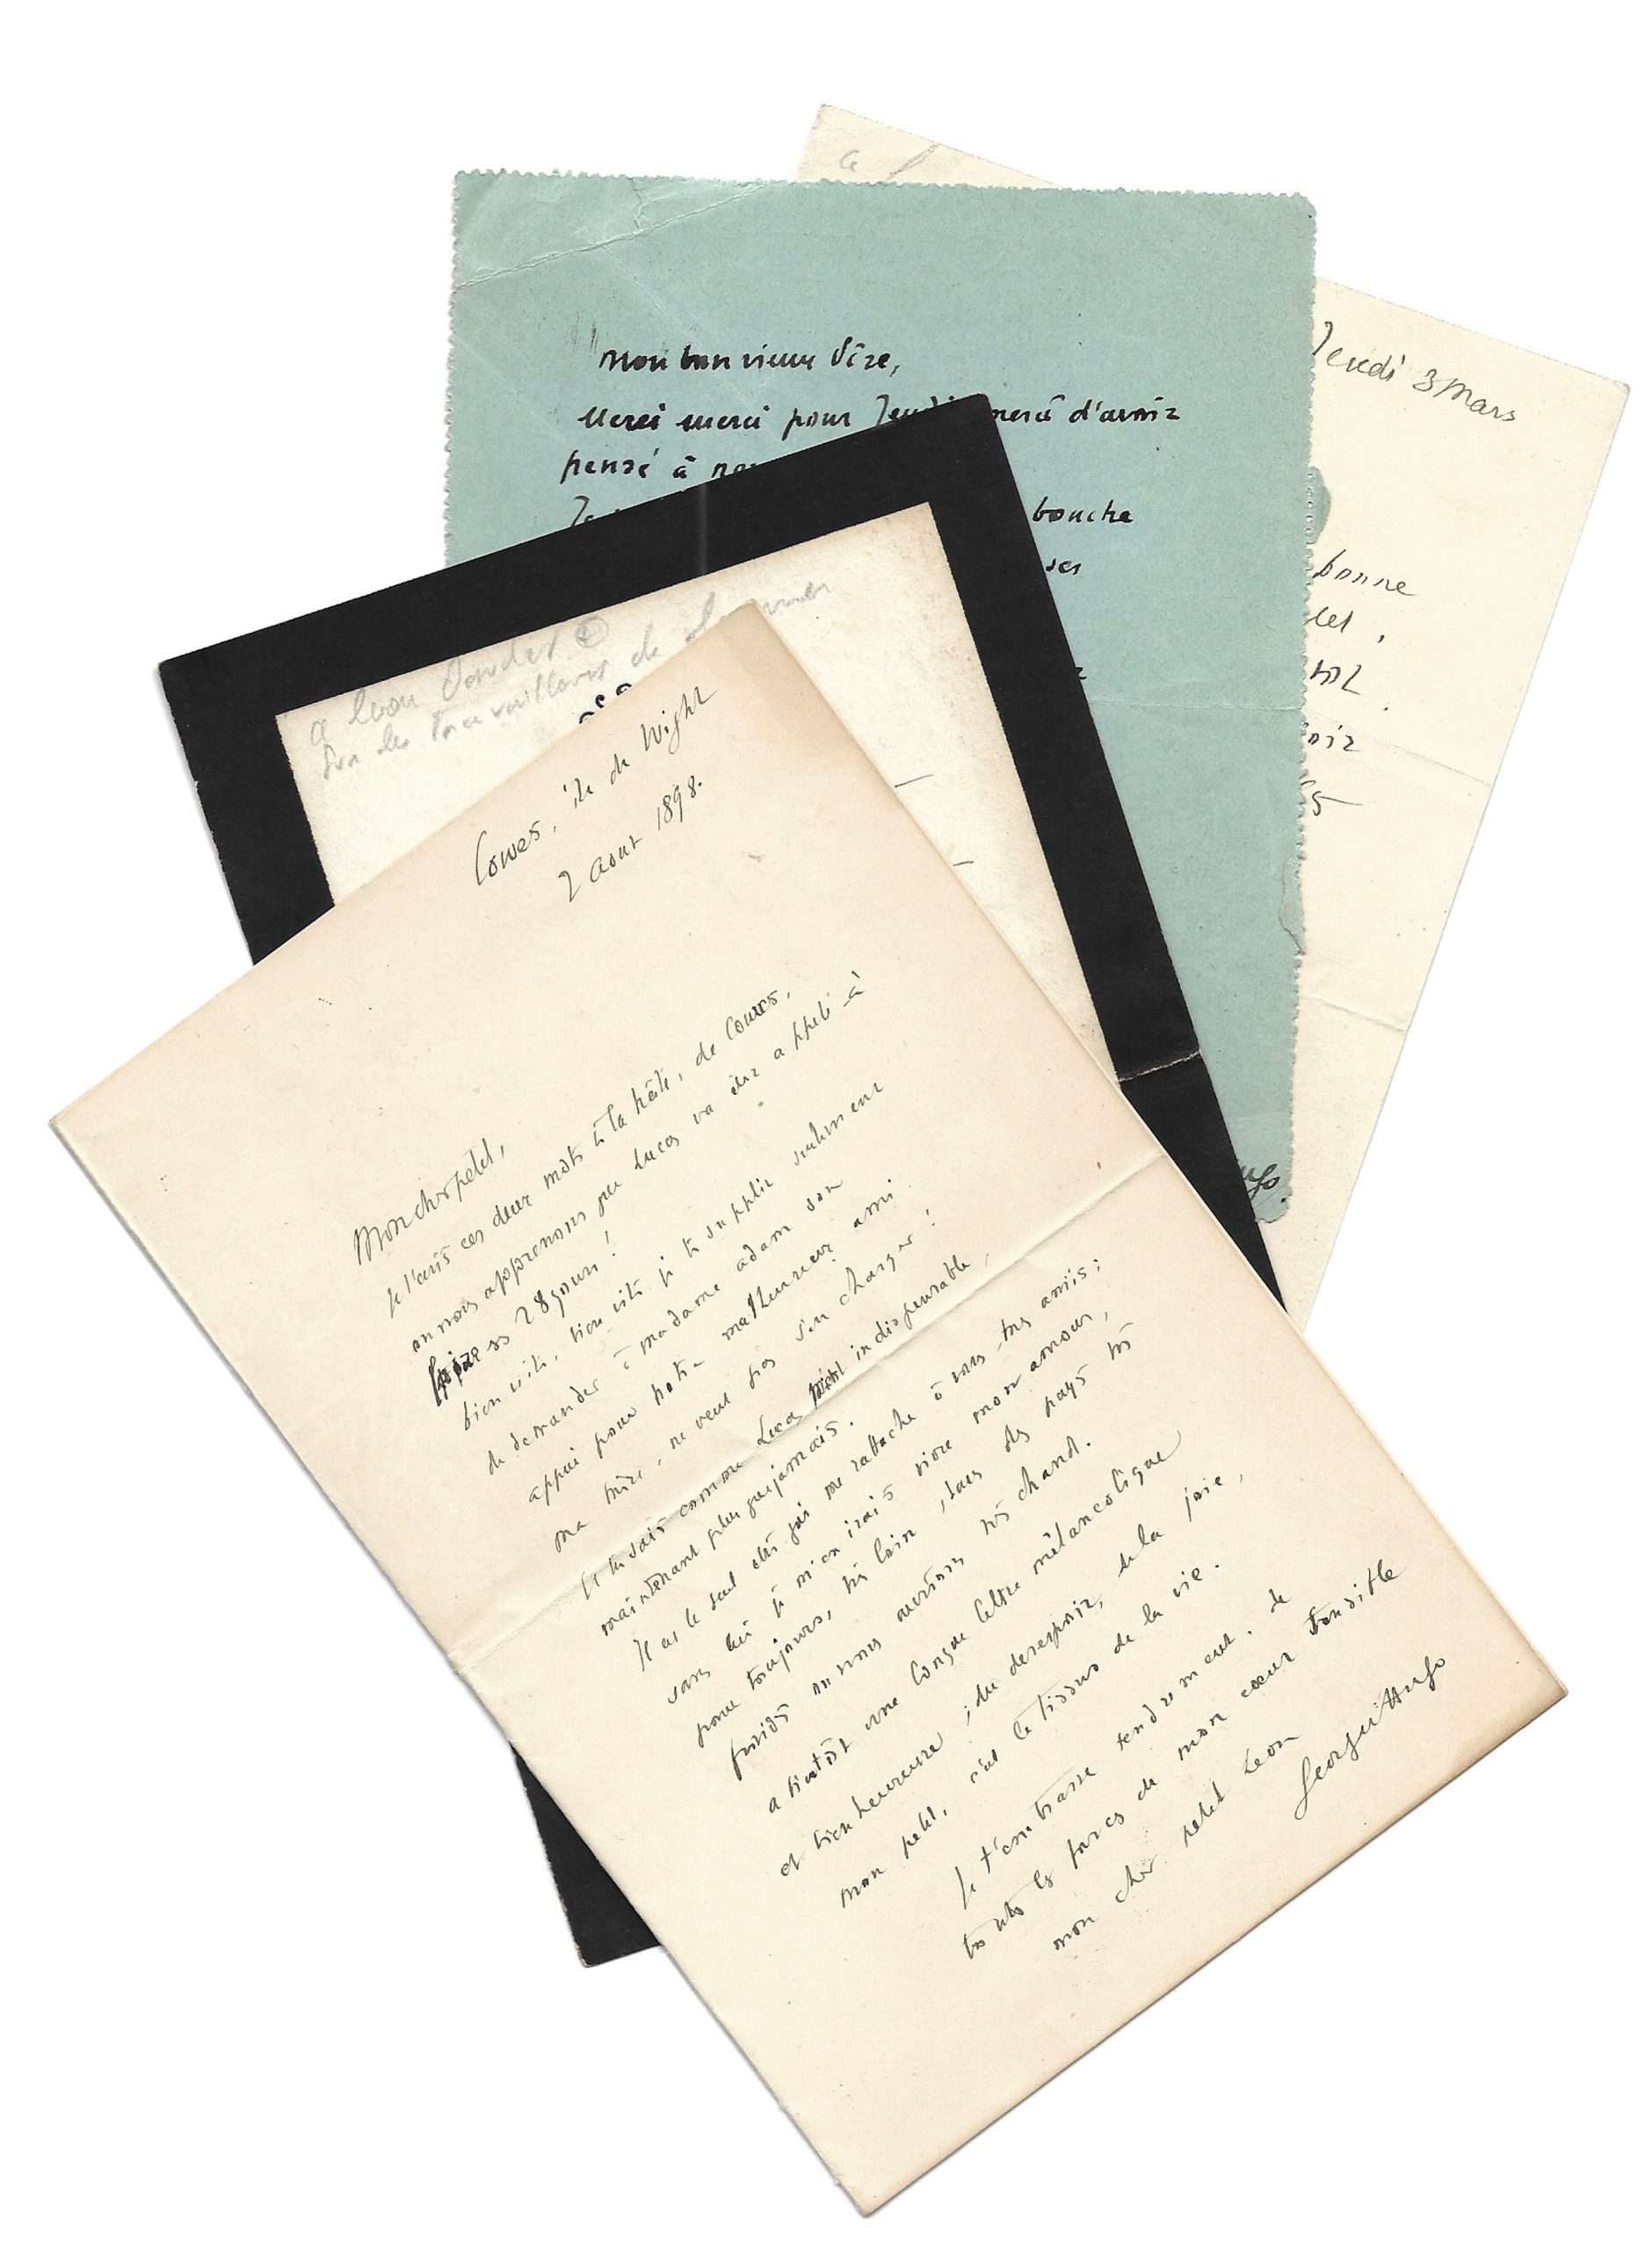 Jeudi 3 Mars
bonne
Mon bon vieux Vize,
Merci merci pour Jeudi merci d'avoir
pensé à
bouche
ses
a Léon Daudet
Sur les Travailleurs de la mer
Cowes, île de Wight
2 aout 1898.
Mon cher petit,
je t'écris ces deux mots à la hâte, de Cowes,
où nous apprenons que Lucas va être appelé à
faire ses 28 jours !
bien vite, bien vite je te supplie seulement
de demander à madame adam son
appui pour notre malheureux ami
ma mère, ne veut pas s'en charger !
Et tu sais comme Lucas m'est indispensable,
maintenant plus que jamais.
Il est le seul être qui me rattache à mes très amis ;
sans lui je m'en irais vivre mon amour,
pour toujours, très loin, dans des pays très
froids où nous aurions très chaud.
a bientôt une longue lettre mélancolique
et bien heureuse ; du desespoir, de la joie,
mon petit, c'est le tissus de la vie.
Je t'embrasse tendrement. de
toutes les forces de mon cœur sensible
mon cher petit Léon
Georges Hugo